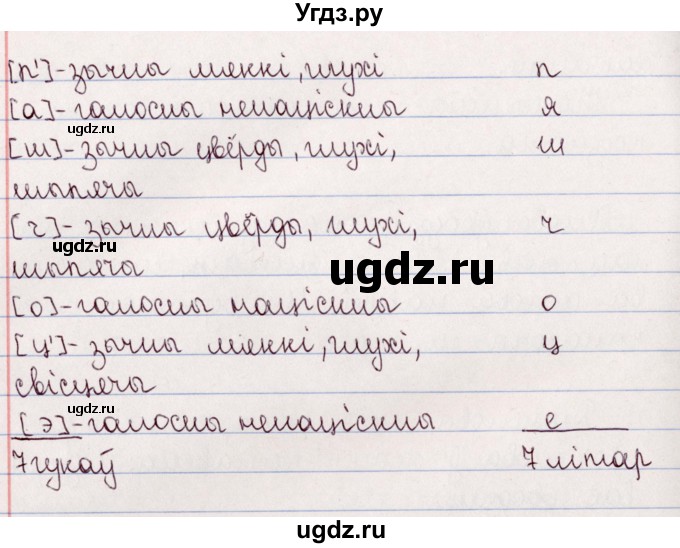 Угдз.ру
[п']-зычны мяккі, глухі п
[а]-галосны ненаціскны я
ugdz.ru
[ш]-зычны цвёрды, глухі, ш
шыпячы
[ч]-зычны цвёрды, глухі, ч
ugdz.ru
шыпячы
ugdz.ru
[о]-галосны націскны о
[ц']-зычны мяккі, глухі, ц
свісцячы
ugdz.ru
[э]-галосны ненаціскны е
7 гукаў 7 літар
ugdz.ru